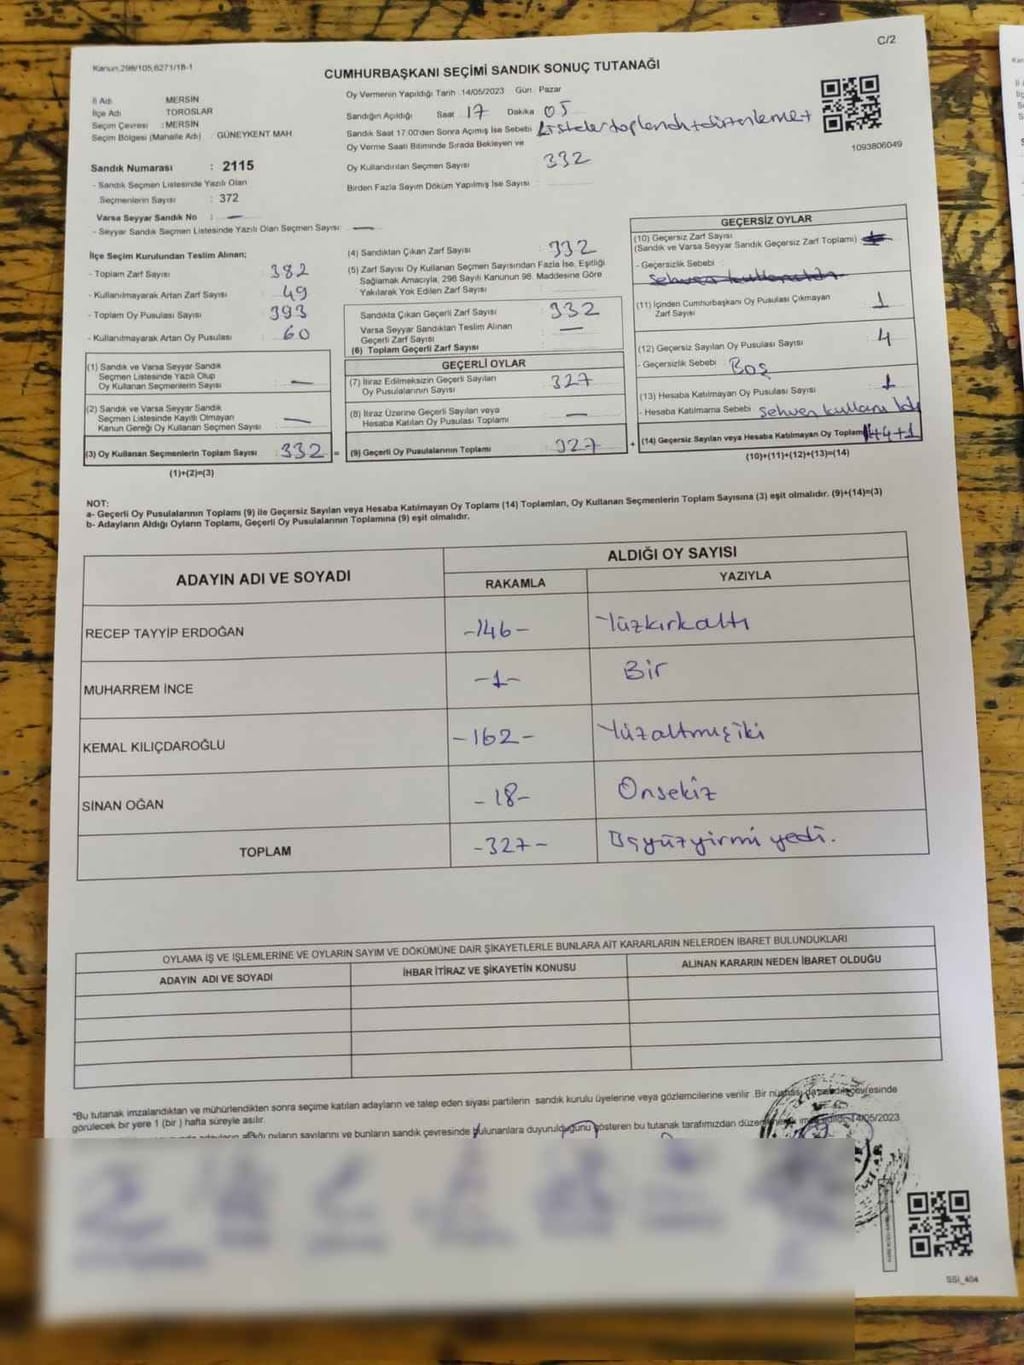 C/2
Kanun.298/105,6271/18-1
CUMHURBAŞKANI SEÇİMİ SANDIK SONUÇ TUTANAĞI
İl Adı : MERSİN
İlçe Adı : TOROSLAR
Seçim Çevresi : MERSİN
Seçim Bölgesi (Mahalle Adı) : GÜNEYKENT MAH
Sandık Numarası : 2115
- Sandık Seçmen Listesinde Yazılı Olan
Seçmenlerin Sayısı : 372
Varsa Seyyar Sandık No : —
- Seyyar Sandık Seçmen Listesinde Yazılı Olan Seçmen Sayısı: —
Oy Vermenin Yapıldığı Tarih :14/05/2023 Gün: Pazar
Sandığın Açıldığı Saat 17 Dakika 05
Sandık Saat 17.00'den Sonra Açımış İse Sebebi Listeler toplandı+düzenleme+
Oy Verme Saati Bitiminde Sırada Bekleyen ve
Oy Kullandırılan Seçmen Sayısı 332
Birden Fazla Sayım Döküm Yapılmış İse Sayısı
1093806049
İlçe Seçim Kurulundan Teslim Alınan;
- Toplam Zarf Sayısı 382
- Kullanılmayarak Artan Zarf Sayısı : 49
- Toplam Oy Pusulası Sayısı : 393
- Kullanılmayarak Artan Oy Pusulası : 60
(1) Sandık ve Varsa Seyyar Sandık
Seçmen Listesinde Yazılı Olup
Oy Kullanan Seçmenlerin Sayısı : —
(2) Sandık ve Varsa Seyyar Sandık
Seçmen Listesinde Kayıtlı Olmayan
Kanun Gereği Oy Kullanan Seçmen Sayısı : —
(3) Oy Kullanan Seçmenlerin Toplam Sayısı : 332 =
(1)+(2)=(3)
(4) Sandıktan Çıkan Zarf Sayısı : 332
(5) Zarf Sayısı Oy Kullanan Seçmen Sayısından Fazla İse, Eşitliği
Sağlamak Amacıyla, 298 Sayılı Kanunun 98. Maddesine Göre
Yakılarak Yok Edilen Zarf Sayısı
Sandıkta Çıkan Geçerli Zarf Sayısı : 332
Varsa Seyyar Sandıktan Teslim Alınan
Geçerli Zarf Sayısı : —
(6) Toplam Geçerli Zarf Sayısı
GEÇERLİ OYLAR
(7) İtiraz Edilmeksizin Geçerli Sayılan
Oy Pusulalarının Sayısı : 327
(8) İtiraz Üzerine Geçerli Sayılan veya
Hesaba Katılan Oy Pusulası Toplamı : —
(9) Geçerli Oy Pusulalarının Toplamı : 327 +
GEÇERSİZ OYLAR
(10) Geçersiz Zarf Sayısı
(Sandık ve Varsa Seyyar Sandık Geçersiz Zarf Toplamı)
- Geçersizlik Sebebi : Sehven kullanıldı
(11) İçinden Cumhurbaşkanı Oy Pusulası Çıkmayan
Zarf Sayısı : 1
(12) Geçersiz Sayılan Oy Pusulası Sayısı : 4
- Geçersizlik Sebebi : Boş
(13) Hesaba Katılmayan Oy Pusulası Sayısı : 1
- Hesaba Katılmama Sebebi : Sehven kullanıldı
(14) Geçersiz Sayılan veya Hesaba Katılmayan Oy Toplamı 1+4+1
(10)+(11)+(12)+(13)=(14)
NOT:
a- Geçerli Oy Pusulalarının Toplamı (9) ile Geçersiz Sayılan veya Hesaba Katılmayan Oy Toplamı (14) Toplamları, Oy Kullanan Seçmenlerin Toplam Sayısına (3) eşit olmalıdır. (9)+(14)=(3)
b- Adayların Aldığı Oyların Toplamı, Geçerli Oy Pusulalarının Toplamına (9) eşit olmalıdır.
ADAYIN ADI VE SOYADI ALDIĞI OY SAYISI
RAKAMLA YAZIYLA
RECEP TAYYİP ERDOĞAN -146- Yüzkırkaltı
MUHARREM İNCE -1- Bir
KEMAL KILIÇDAROĞLU -162- Yüzaltmışiki
SİNAN OĞAN -18- Onsekiz
TOPLAM -327- Üçyüzyirmi yedi.
OYLAMA İŞ VE İŞLEMLERİNE VE OYLARIN SAYIM VE DÖKÜMÜNE DAİR ŞİKAYETLERLE BUNLARA AİT KARARLARIN NELERDEN İBARET BULUNDUKLARI
ADAYIN ADI VE SOYADI İHBAR İTİRAZ VE ŞİKAYETİN KONUSU ALINAN KARARIN NEDEN İBARET OLDUĞU
*Bu tutanak imzalandıktan ve mühürlendikten sonra seçime katılan adayların ve talep eden siyasi partilerin sandık kurulu üyelerine veya gözlemcilerine verilir. Bir nüshası da sandık çevresinde
görülecek bir yere 1 (bir) hafta süreyle asılır.
oyların sayılarını ve bunların sandık çevresinde bulunanlara duyurulduğunu gösteren bu tutanak tarafımızdan 14/05/2023
SSİ_404